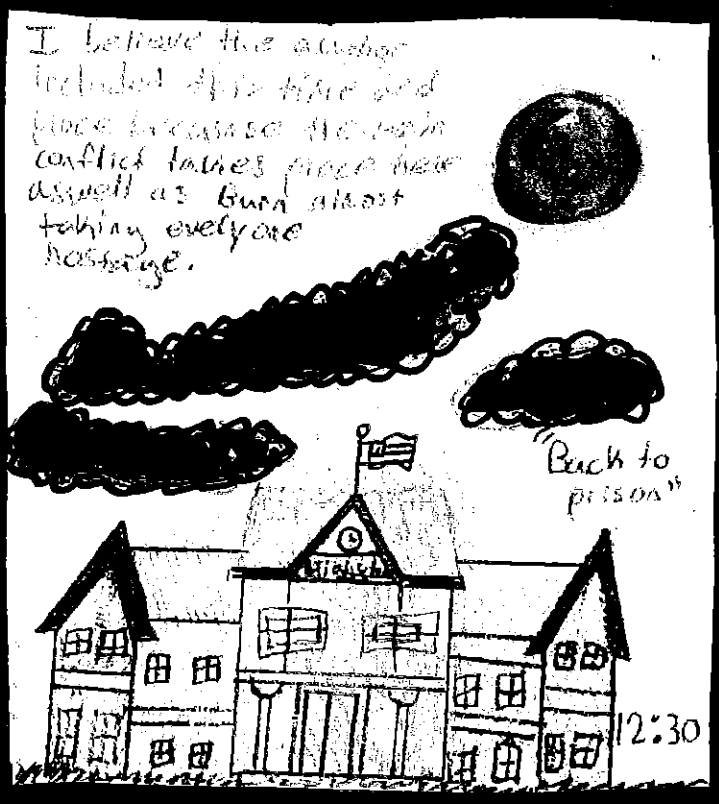 I believe the author
included this time and
place because the main
conflict takes place here
aswell as Burd almost
taking everyone
hostage.
"Back to
prison"
12:30